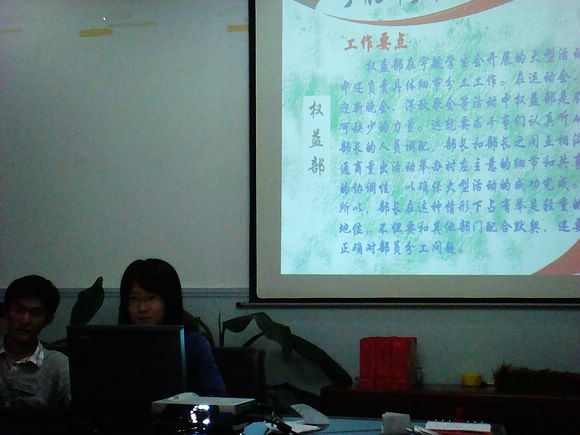 工作要点
权益部在宇航学生会开展的大型活动
中还负责具体细节分工工作。在运动会、
迎新晚会、深秋歌会等活动中权益部是
可缺少的力量。这就要求干事们认真听
部长的人员调配，部长和部长之间互相沟
通商量出活动举办时应主意的细节和共
的协调性，以确保大型活动的成功完成。
所以，部长在这种情形下占有举足轻重的
地位，不但要和其他部门配合默契，还要
正确对部员分工问题。
权益部